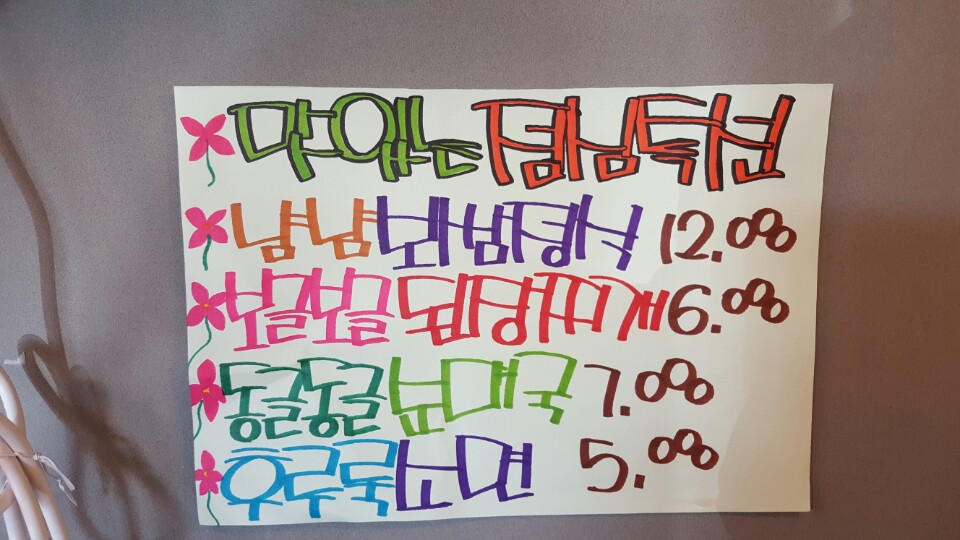 맛있는 점심특선
냠냠 보쌈정식 12.000
보글보글 된장찌개 6.000
동글동글 순대국 7.000
후루룩 소면 5.000